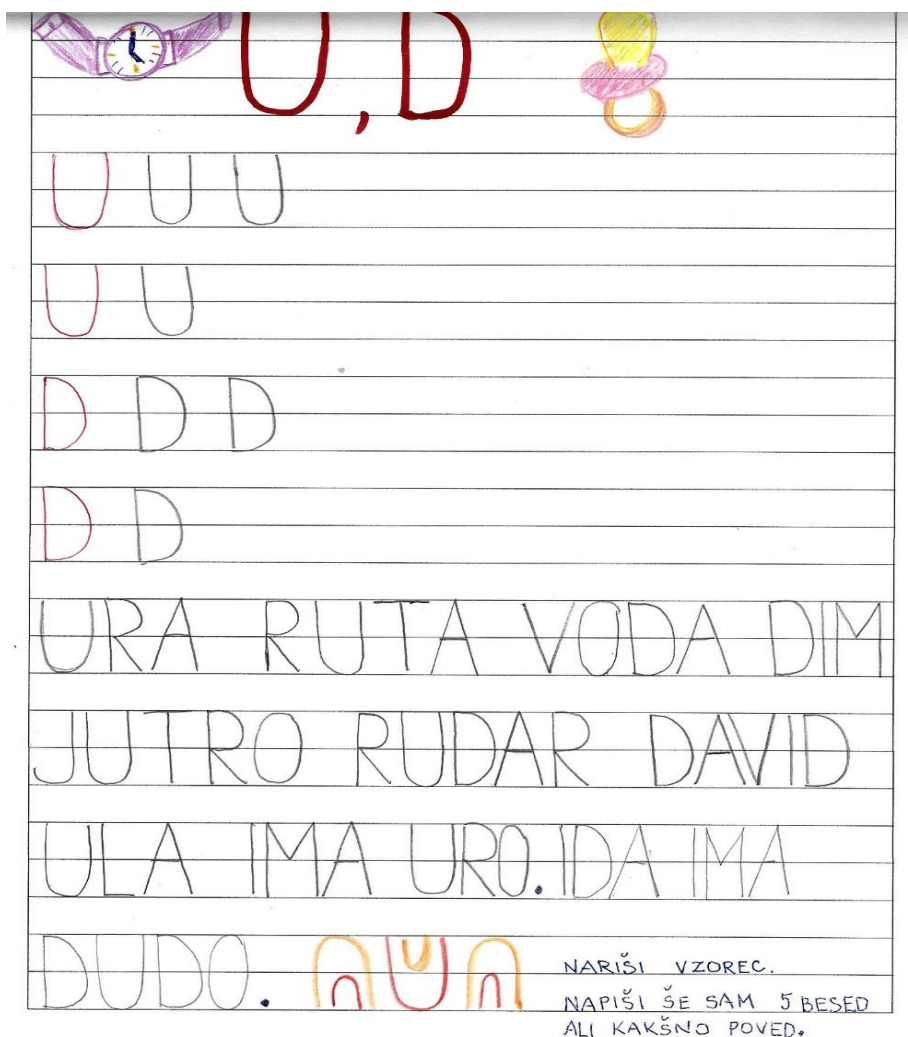 U, D
U U U
U U
D D D
D D
URA RUTA VODA DIM
JUTRO RUDAR DAVID
ULA IMA URO. IDA IMA
DUDO.
NARIŠI VZOREC.
NAPIŠI ŠE SAM 5 BESED
ALI KAKŠNO POVED.